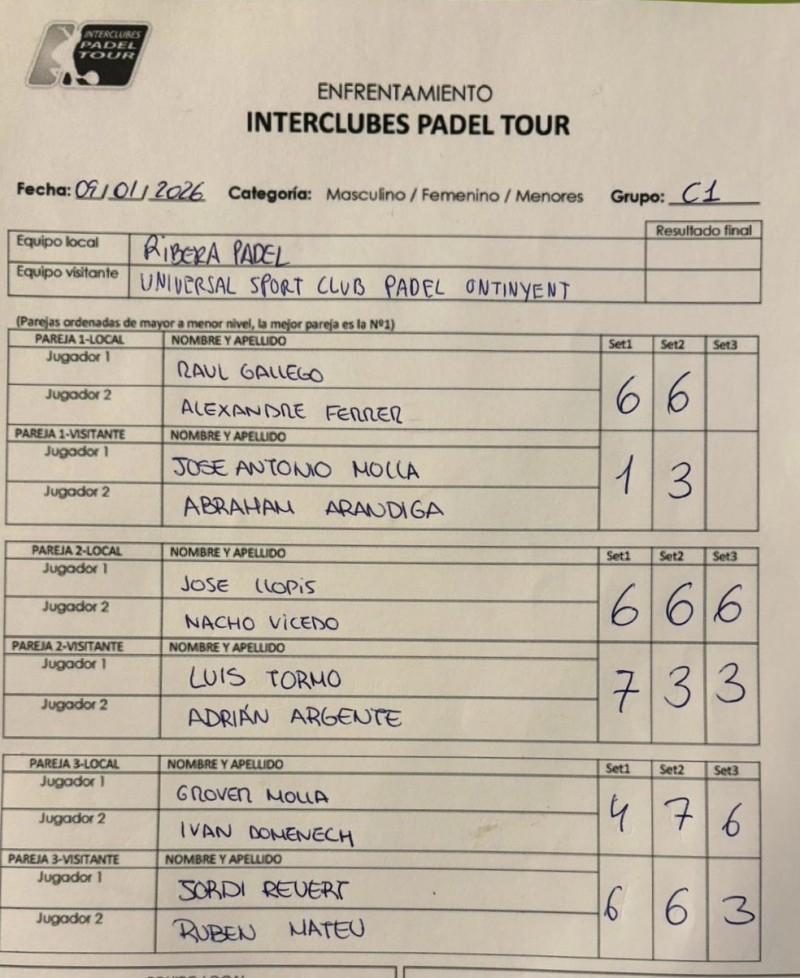 INTERCLUBES
PADEL
TOUR
ENFRENTAMIENTO
INTERCLUBES PADEL TOUR
Fecha: 09/01/2026 Categoría: Masculino / Femenino / Menores Grupo: C1
Resultado final
Equipo local RIBERA PADEL
Equipo visitante UNIVERSAL SPORT CLUB PADEL ONTINYENT
(Parejas ordenadas de mayor a menor nivel, la mejor pareja es la Nº1)
PAREJA 1-LOCAL NOMBRE Y APELLIDO Set1 Set2 Set3
Jugador 1 RAUL GALLEGO
6 6
Jugador 2 ALEXANDRE FERRER
PAREJA 1-VISITANTE NOMBRE Y APELLIDO
Jugador 1 JOSE ANTONIO MOLLA
1 3
Jugador 2 ABRAHAM ARANDIGA
PAREJA 2-LOCAL NOMBRE Y APELLIDO Set1 Set2 Set3
Jugador 1 JOSE LLOPIS
6 6 6
Jugador 2 NACHO VICEDO
PAREJA 2-VISITANTE NOMBRE Y APELLIDO
Jugador 1 LUIS TORMO
7 3 3
Jugador 2 ADRIÁN ARGENTE
PAREJA 3-LOCAL NOMBRE Y APELLIDO Set1 Set2 Set3
Jugador 1 GROVER MOLLA
4 7 6
Jugador 2 IVAN DOMENECH
PAREJA 3-VISITANTE NOMBRE Y APELLIDO
Jugador 1 JORDI REVERT
6 6 3
Jugador 2 RUBEN MATEU